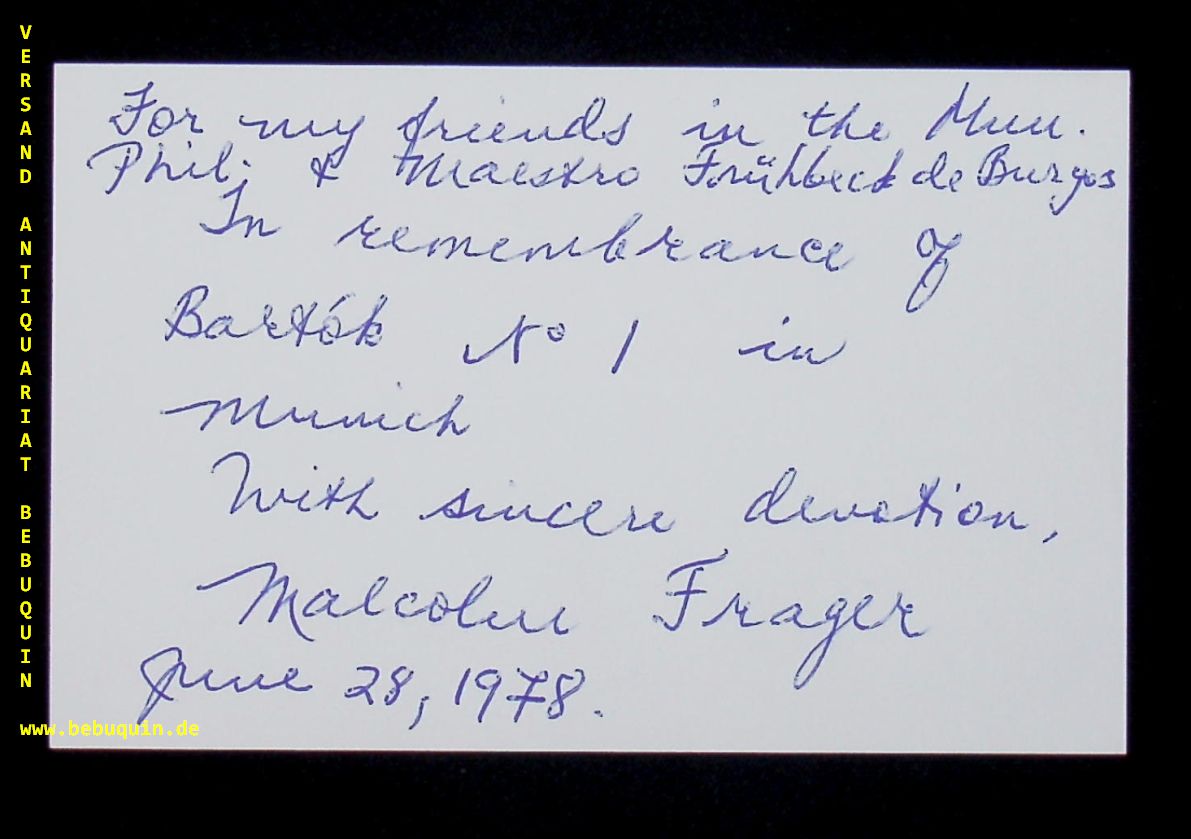 For my friends in the Mun.
Phil. & Maestro Frühbeck de Burgos
In remembrance of
Bartók No 1 in
Munich
With sincere devotion,
Malcolm Frager
June 28, 1978.
VERSAND ANTIQUARIAT BEBUQUIN
www.bebuquin.de